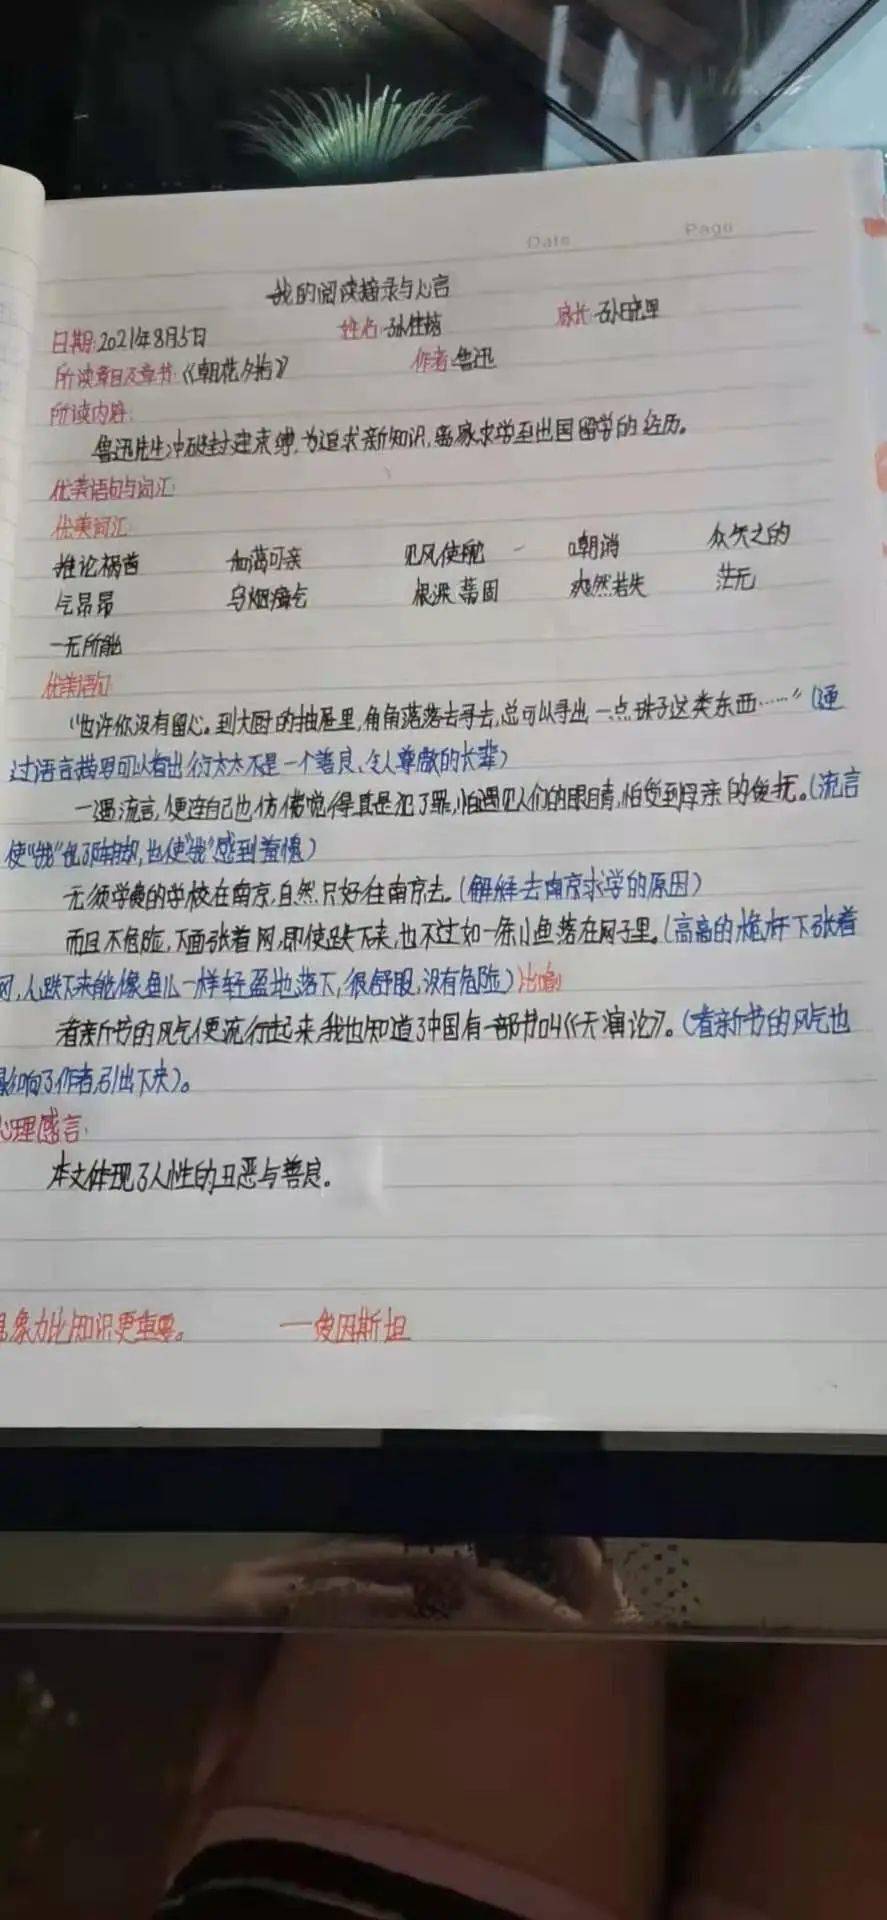 Date Page
我的阅读摘录与心言
日期:2021年8月5日 姓名:孙佳 家长:孙晓
所读章目及章节:《朝花夕拾》 作者:鲁迅
所读内容:
鲁迅先生冲破封建束缚,为追求新知识,离家求学至出国留学的经历。
优美语句与词汇:
优美词汇:
推论祸首 和蔼可亲 见风使舵 嘲诮 众矢之的
气昂昂 乌烟瘴气 根深蒂固 爽然若失 茫无
一无所能
优美语句
“也许你没有留心。到大厨的抽屉里,角角落落去寻去,总可以寻出一点珠子这类东西……”(通
过语言描写可以看出衍太太不是一个善良、令人尊敬的长辈)
一遇流言,便连自己也仿佛觉得真是犯了罪,怕遇见人们的眼睛,怕受到母亲的爱抚。(流言
使“我”也了,也使“我”感到羞愧)
无须学费的学校在南京,自然只好往南京去。(解释去南京求学的原因)
而且不危险,下面张着网,即使跌下来,也不过如一条小鱼落在网子里。(高高的桅杆下张着
网,人跌下来能像鱼儿一样轻盈地落下,很舒服,没有危险)比喻
看新书的风气便流行起来,我也知道了中国有一部书叫《天演论》。(看新书的风气也
影响了作者,引出下夹)。
心理感言:
本文体现了人性的丑恶与善良。
象力比知识更重要。 一爱因斯坦